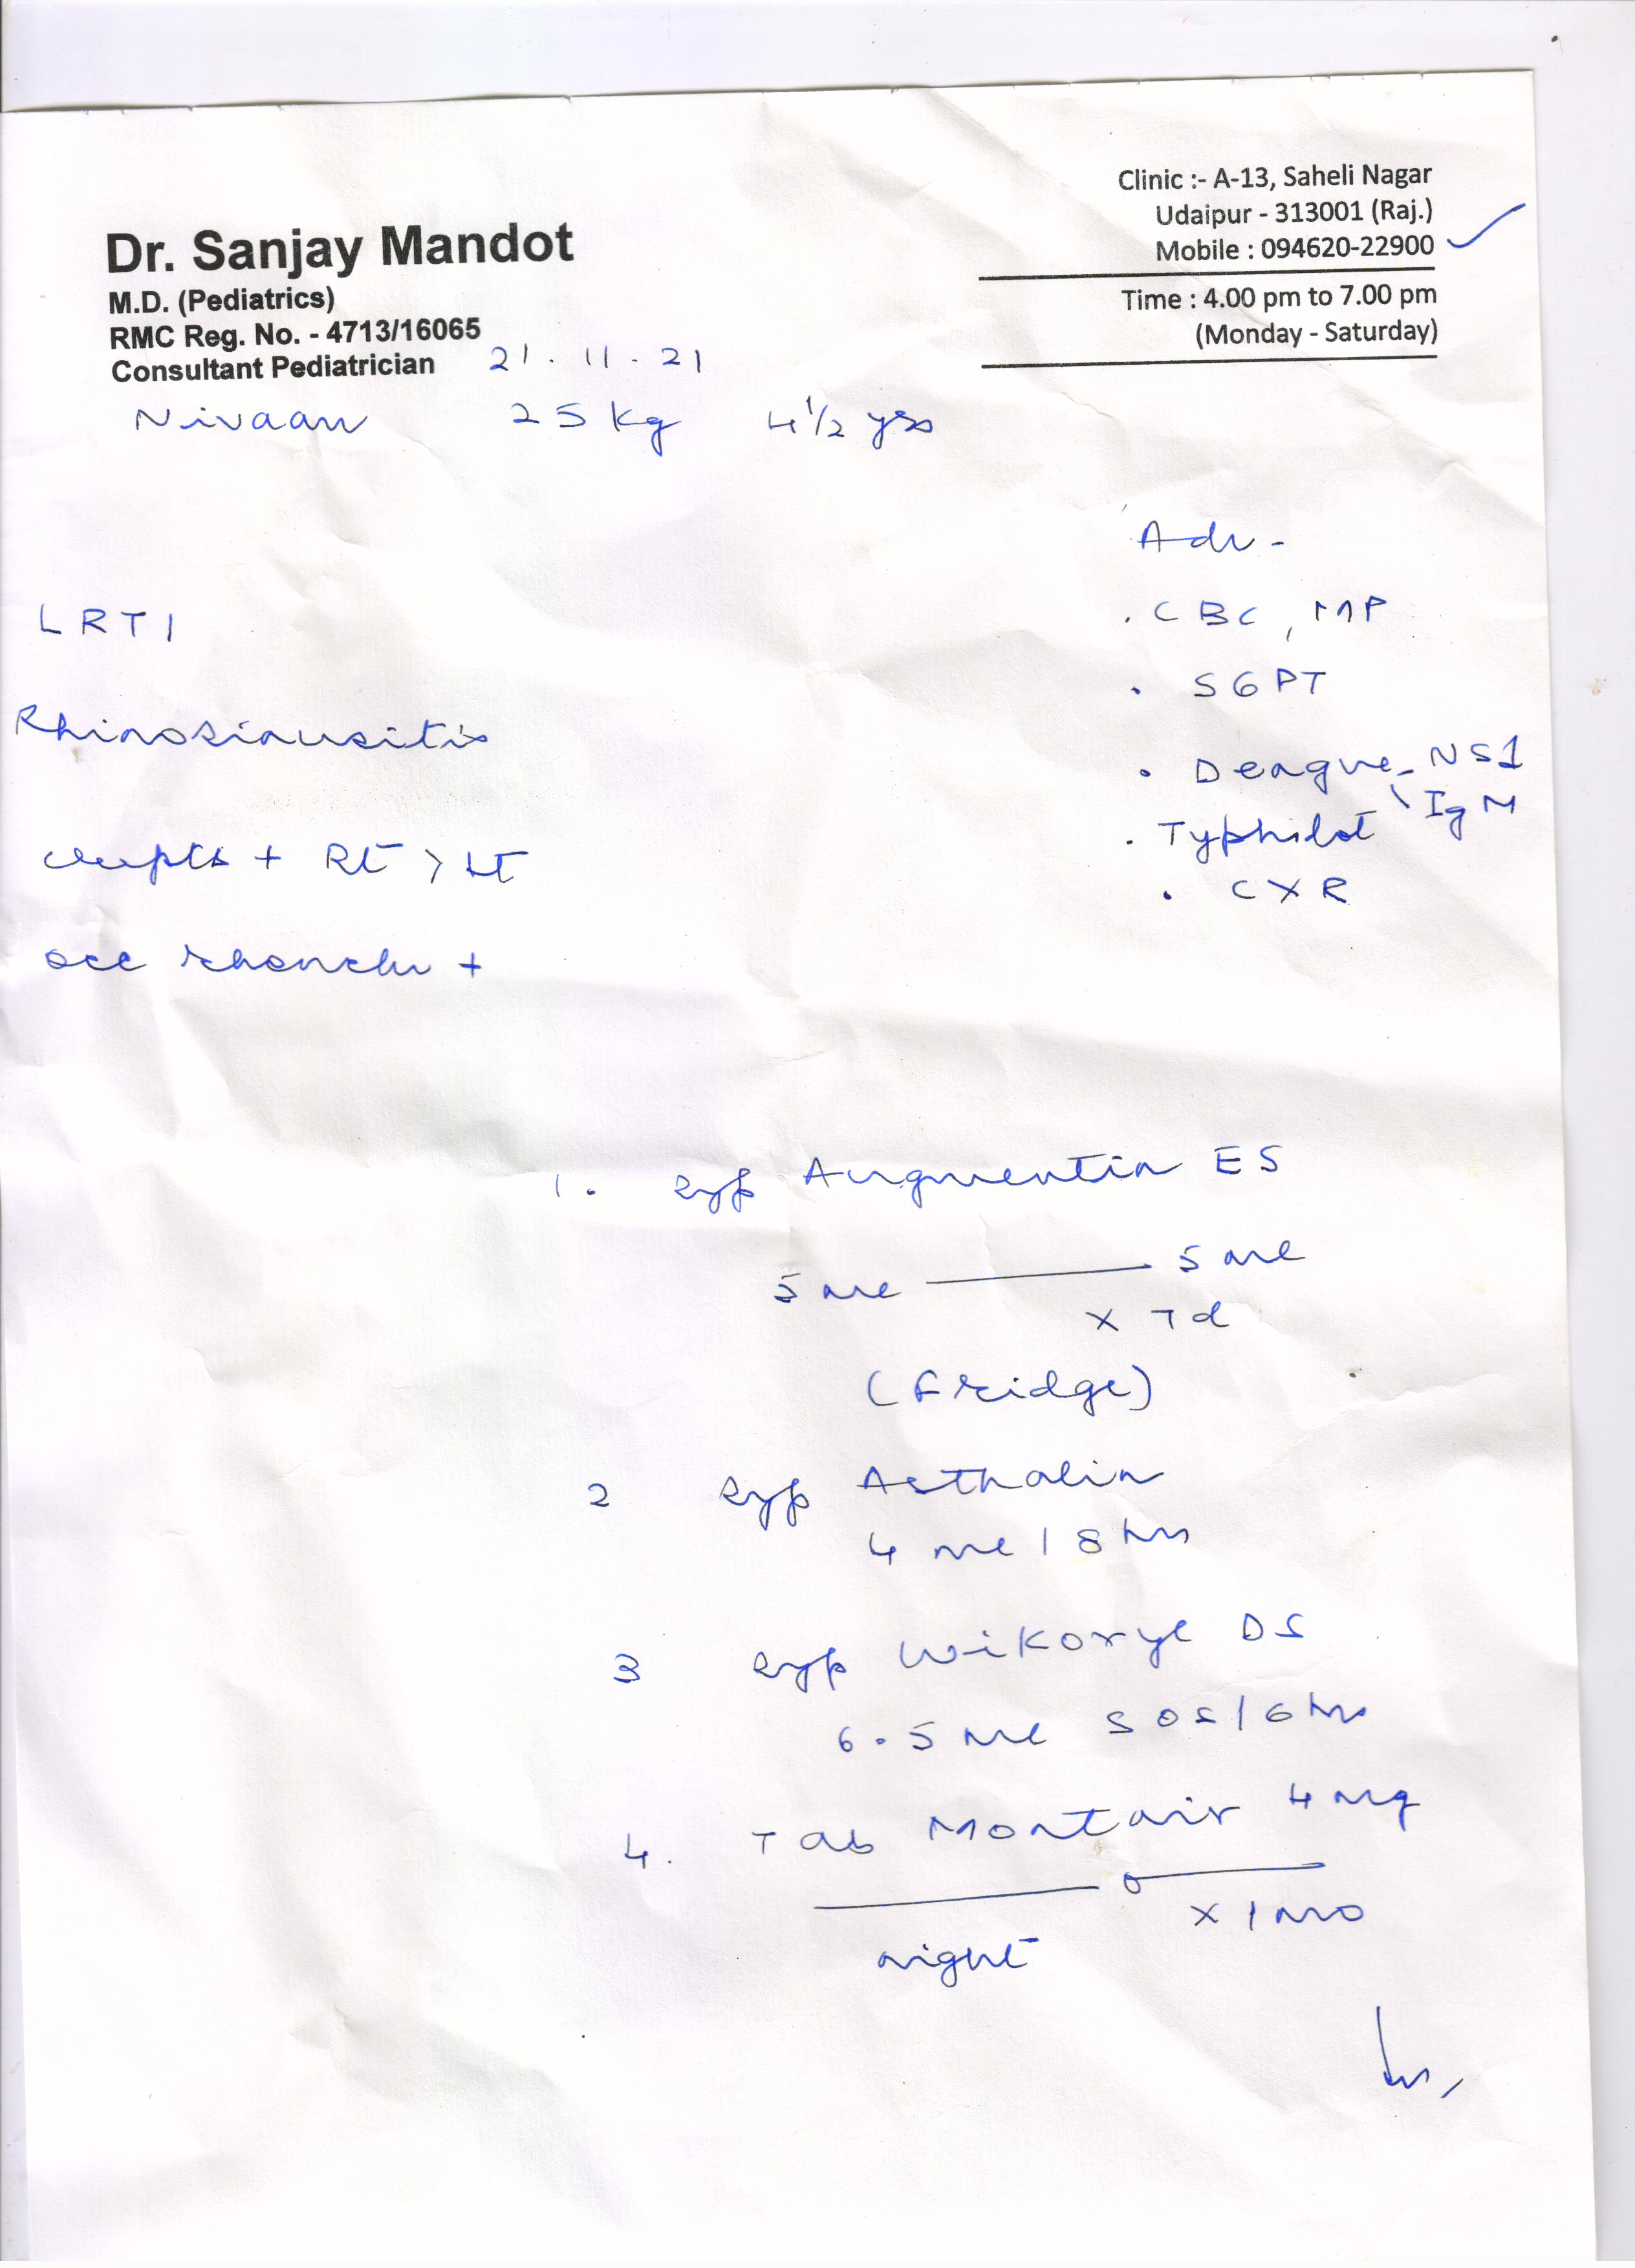 Clinic :- A-13, Saheli Nagar
Udaipur - 313001 (Raj.)
Mobile : 094620-22900
Time : 4.00 pm to 7.00 pm
(Monday - Saturday)
Dr. Sanjay Mandot
M.D. (Pediatrics)
RMC Reg. No. - 4713/16065
Consultant Pediatrician 21.11.21
Nivaan 25 kg 4 1/2 yrs
Adv -
. CBC, MP
. SGPT
. Dengue - NS1
\ IgM
. Typhidot
. CXR
LRTI
Rhinosinusitis
crepts + Rt > Lt
occ rhonchi +
1. Syp Augmentin ES
5 ml ——— 5 ml
x 7d
(Fridge)
2 Syp Asthalin
4 ml / 8 hrs
3 Syp Wikoryl DS
6.5 ml SOS / 6 hrs
4. Tab Montair 4 mg
——— o ———
x 1 mo
night